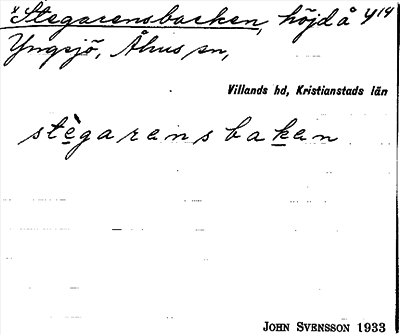 *Stegarensbacken, höjd å y14
Yngsjö, Åhus sn,
Villands hd, Kristianstads län
stègarensbaken
JOHN SVENSSON 1933